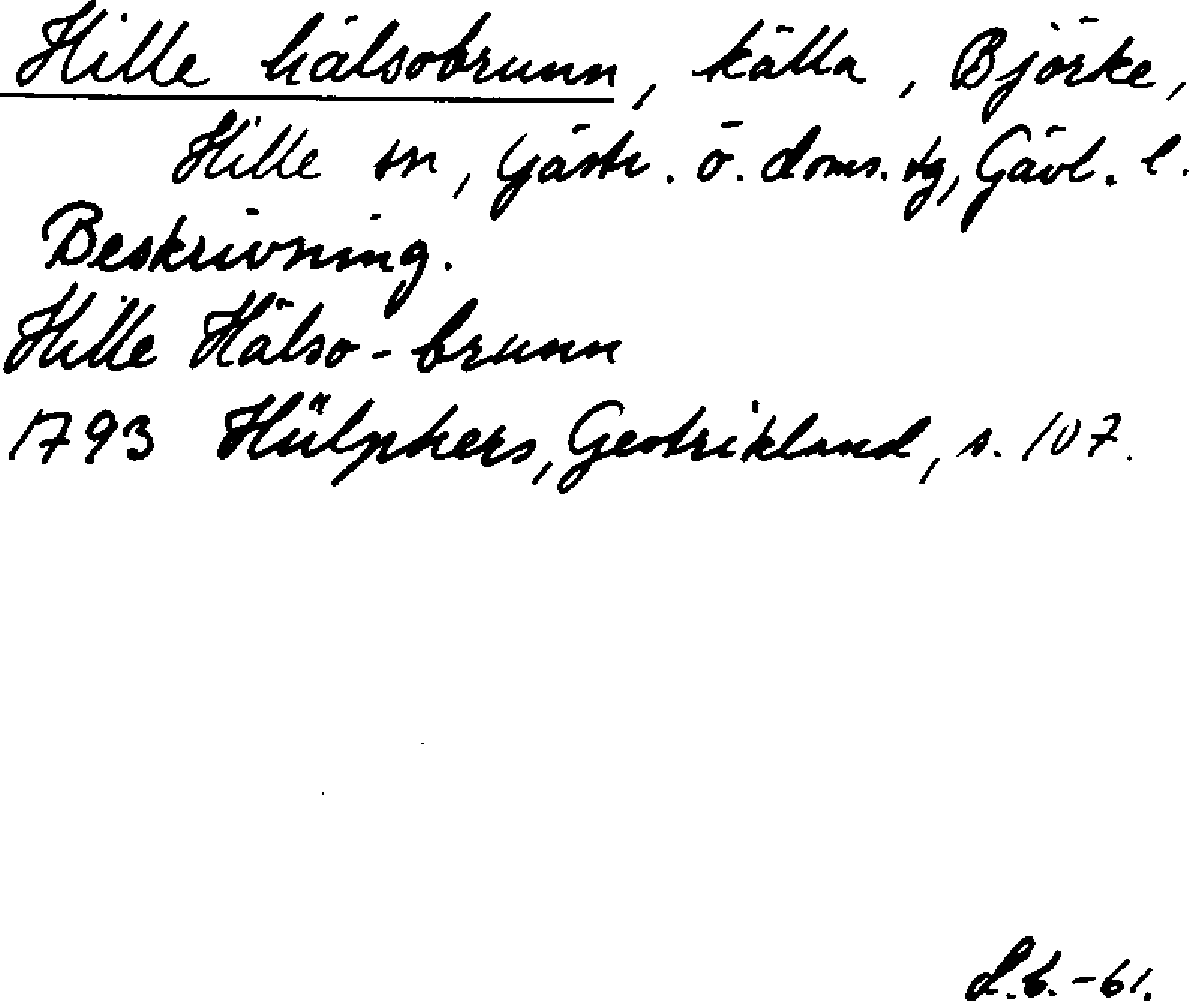 Hille hälsobrunn, källa, Björke,
Hille sn, Gästr. ö. doms. tg, Gävl. l.
Beskrivning.
Hille Hälso-brunn
1793 Hülphers, Gestrikland, s. 107.
L.b.-61.